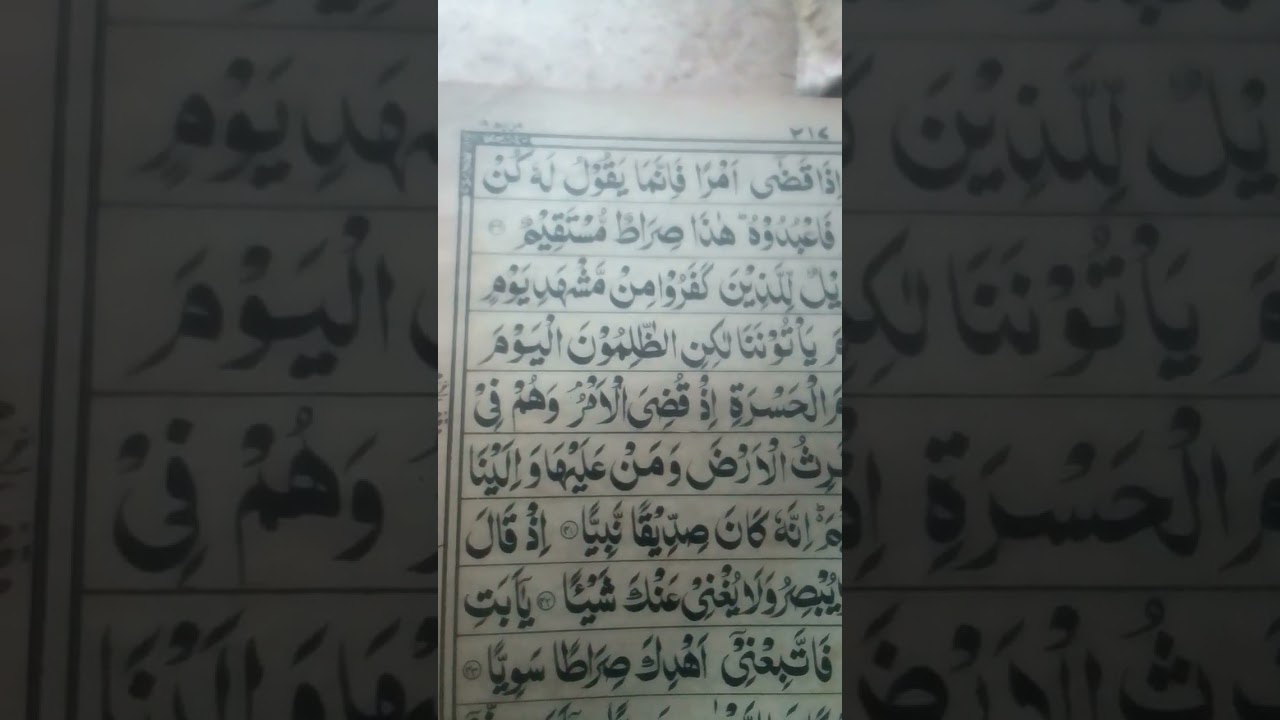 ٣١٧
اِذَا قَضٰى اَمْرًا فَاِنَّمَا يَقُوْلُ لَهٗ كُنْ
فَاعْبُدُوْهُ ۭ هٰذَا صِرَاطٌ مُّسْتَقِيْمٌ ۝۳۶
يْلٌ لِّلَّذِيْنَ كَفَرُوْا مِنْ مَّشْهَدِ يَوْمٍ
مَ يَاْتُوْنَنَا لٰكِنِ الظّٰلِمُوْنَ الْيَوْمَ
مَ الْحَسْرَةِ اِذْ قُضِىَ الْاَمْرُ وَهُمْ فِىْ
رِثُ الْاَرْضَ وَمَنْ عَلَيْهَا وَاِلَيْنَا
مَ ۭ اِنَّهٗ كَانَ صِدِّيْقًا نَّبِيًّا ۝۴۱ اِذْ قَالَ
يُبْصِرُ وَلَا يُغْنِىْ عَنْكَ شَيْـًٔا ۝۴۲ يٰۤاَبَتِ
فَاتَّبِعْنِىْۤ اَهْدِكَ صِرَاطًا سَوِيًّا ۝۴۳